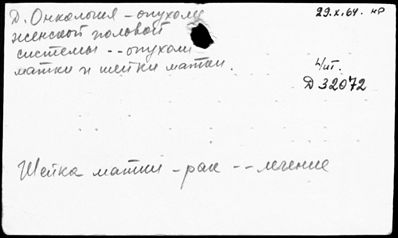 Д. Онкология - опухоли
женской половой
системы -- опухоли
матки и шейки матки.
29.X.64. нр
Д 32072
Шейка матки - рак -- лечение